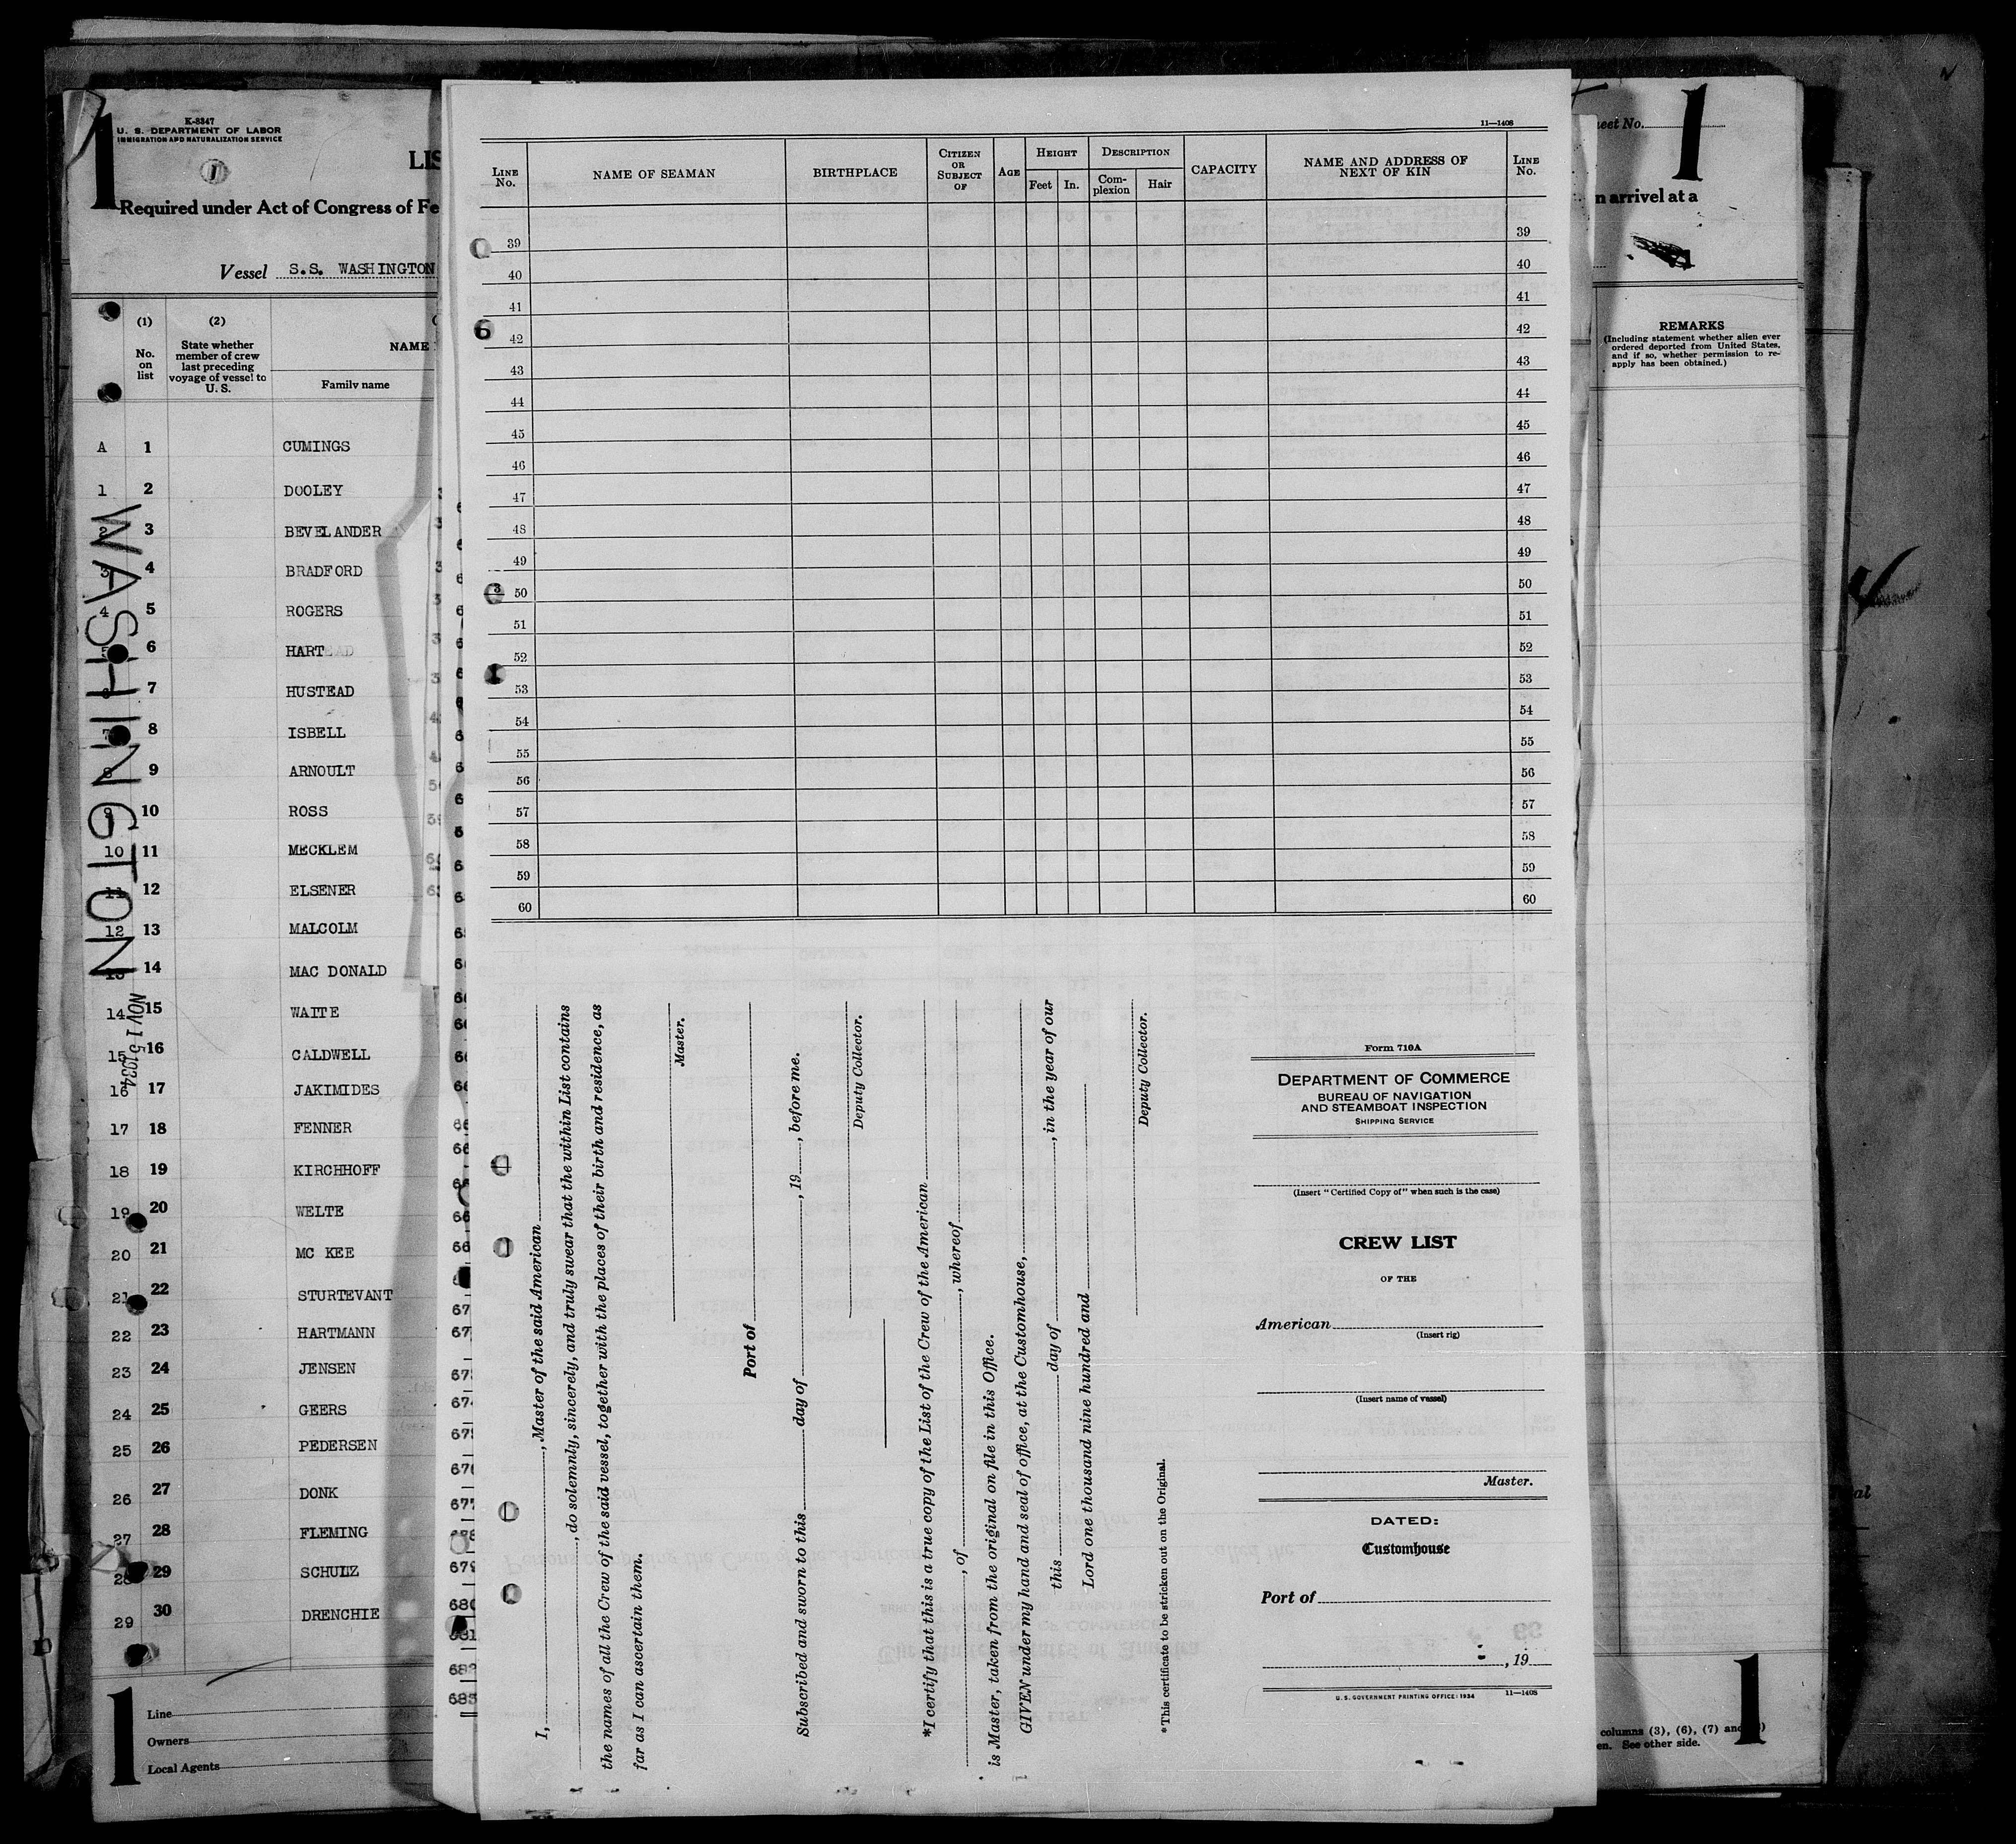 K-8347
U. S. DEPARTMENT OF LABOR
IMMIGRATION AND NATURALIZATION SERVICE
1
1
LIS
Required under Act of Congress of Fe
Vessel S.S. WASHINGTON
(1)
(2)
No. on list
State whether member of crew last preceding voyage of vessel to U. S.
NAME
Family name
A 1 CUMINGS
1 2 DOOLEY
2 3 BEVELANDER
3 4 BRADFORD
4 5 ROGERS
6 HART
7 HUSTEAD
7 8 ISBELL
8 9 ARNOULT
9 10 ROSS
10 11 MECKLEM
11 12 ELSENER
12 13 MALCOLM
13 14 MAC DONALD
14 15 WAITE
15 16 CALDWELL
16 17 JAKIMIDES
17 18 FENNER
18 19 KIRCHHOFF
19 20 WELTE
20 21 MC KEE
21 22 STURTEVANT
22 23 HARTMANN
23 24 JENSEN
24 25 GEERS
25 26 PEDERSEN
26 27 DONK
27 28 FLEMING
28 29 SCHULZ
29 30 DRENCHIE
WASHINGTON
NOV 15 1934
1
Line
Owners
Local Agents
677
679
680
682
683
11—1408
LINE No.
NAME OF SEAMAN
BIRTHPLACE
CITIZEN OR SUBJECT OF
AGE
HEIGHT
Feet In.
DESCRIPTION
Com-plexion Hair
CAPACITY
NAME AND ADDRESS OF NEXT OF KIN
LINE No.
39 39
40 40
41 41
42 42
43 43
44 44
45 45
46 46
47 47
48 48
49 49
50 50
51 51
52 52
53 53
54 54
55 55
56 56
57 57
58 58
59 59
60 60
I, , Master of the said American
, do solemnly, sincerely, and truly swear that the within List contains
the names of all the Crew of the said vessel, together with the places of their birth and residence, as
far as I can ascertain them.
Master.
Port of
Subscribed and sworn to this day of , 19 , before me.
Deputy Collector.
*I certify that this is a true copy of the List of the Crew of the American
, of , whereof
is Master, taken from the original on file in this Office.
GIVEN under my hand and seal of office, at the Customhouse,
this day of , in the year of our
Lord one thousand nine hundred and
Deputy Collector.
*This certificate to be stricken out on the Original.
Form 710A
DEPARTMENT OF COMMERCE
BUREAU OF NAVIGATION
AND STEAMBOAT INSPECTION
SHIPPING SERVICE
(Insert "Certified Copy of" when such is the case)
CREW LIST
OF THE
American
(Insert rig)
(Insert name of vessel)
Master.
DATED:
Customhouse
Port of
, 19
U. S. GOVERNMENT PRINTING OFFICE: 1934 11—1408
eet No.
1
n arrivel at a
REMARKS
(Including statement whether alien ever ordered deported from United States, and if so, whether permission to re-apply has been obtained.)
columns (3), (6), (7) and
en. See other side.
1